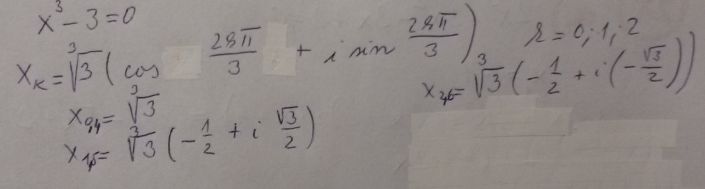 x³ - 3 = 0
x_k = ∛3 ( cos 2kπ/3 + i sin 2kπ/3 ) k = 0; 1; 2
x_{0,4} = ∛3
x_{1,5} = ∛3 ( -1/2 + i √3/2 )
x_{2,6} = ∛3 ( -1/2 + i ( -√3/2 ) )